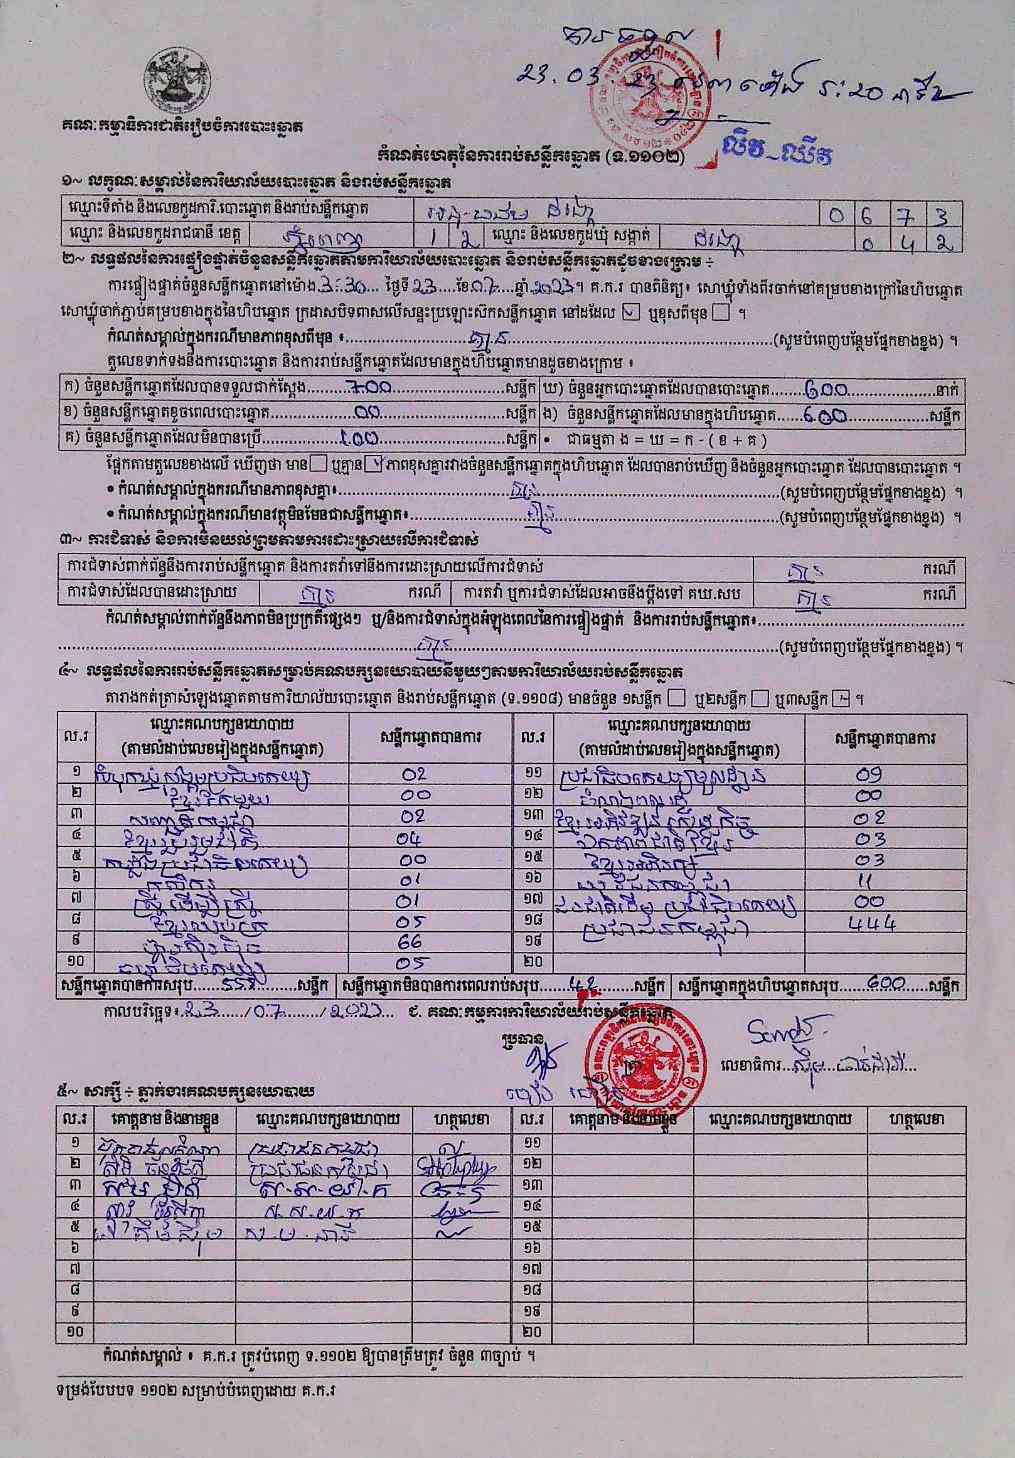 23.03.23
គណៈកម្មាធិការជាតិរៀបចំការបោះឆ្នោត
លីវ_ឈីវ
កំណត់ហេតុនៃការរាប់សន្លឹកឆ្នោត (ទ.១១០២)
១~ លក្ខណៈសម្គាល់នៃការិយាល័យបោះឆ្នោត និងរាប់សន្លឹកឆ្នោត
ឈ្មោះទីតាំង និងលេខកូដការិ.បោះឆ្នោត និងរាប់សន្លឹកឆ្នោត ដង្កោ 0 6 7 3
ឈ្មោះ និងលេខកូដរាជធានី ខេត្ត ភ្នំពេញ 1 2 ឈ្មោះ និងលេខកូដឃុំ សង្កាត់ ដង្កោ 0 4 2
២~ លទ្ធផលនៃការផ្ទៀងផ្ទាត់ចំនួនសន្លឹកឆ្នោតតាមការិយាល័យបោះឆ្នោត និងរាប់សន្លឹកឆ្នោតដូចខាងក្រោម ÷
ការផ្ទៀងផ្ទាត់ចំនួនសន្លឹកឆ្នោតនៅម៉ោង 3:30 ថ្ងៃទី 23 ខែ 07 ឆ្នាំ 2023។ គ.ក.រ បានពិនិត្យ៖ សោឃ្មុំទាំងពីរចាក់នៅគម្របខាងក្រៅនៃហិបឆ្នោត
សោឃ្មុំចាក់ភ្ជាប់គម្របខាងក្នុងនៃហិបឆ្នោត ក្រដាសបិទពាសលើសន្ទះប្រឡោះស៊កសន្លឹកឆ្នោត នៅដដែល ☑ ឬខុសពីមុន ☐ ។
កំណត់សម្គាល់ក្នុងករណីមានភាពខុសពីមុន ៖ គ្មាន (សូមបំពេញបន្ថែមផ្នែកខាងខ្នង) ។
តួលេខទាក់ទងនឹងការបោះឆ្នោត និងការរាប់សន្លឹកឆ្នោតដែលមានក្នុងហិបឆ្នោតមានដូចខាងក្រោម ៖
ក) ចំនួនសន្លឹកឆ្នោតដែលបានទទួលជាក់ស្តែង 700 សន្លឹក ឃ) ចំនួនអ្នកបោះឆ្នោតដែលបានបោះឆ្នោត 600 នាក់
ខ) ចំនួនសន្លឹកឆ្នោតខូចពេលបោះឆ្នោត 00 សន្លឹក ង) ចំនួនសន្លឹកឆ្នោតដែលមានក្នុងហិបឆ្នោត 600 សន្លឹក
គ) ចំនួនសន្លឹកឆ្នោតដែលមិនបានប្រើ 100 សន្លឹក • ជាធម្មតា ង = ឃ = ក - ( ខ + គ )
ផ្អែកតាមតួលេខខាងលើ ឃើញថា មាន ☐ ឬគ្មាន ☑ ភាពខុសគ្នារវាងចំនួនសន្លឹកឆ្នោតក្នុងហិបឆ្នោត ដែលបានរាប់ឃើញ និងចំនួនអ្នកបោះឆ្នោត ដែលបានបោះឆ្នោត ។
• កំណត់សម្គាល់ក្នុងករណីមានភាពខុសគ្នា៖ គ្មាន (សូមបំពេញបន្ថែមផ្នែកខាងខ្នង) ។
• កំណត់សម្គាល់ក្នុងករណីមានវត្ថុមិនមែនជាសន្លឹកឆ្នោត៖ គ្មាន (សូមបំពេញបន្ថែមផ្នែកខាងខ្នង) ។
៣~ ការជំទាស់ និងការមិនយល់ព្រមតាមការដោះស្រាយលើការជំទាស់
ការជំទាស់ពាក់ព័ន្ធនឹងការរាប់សន្លឹកឆ្នោត និងការតវ៉ាទៅនឹងការដោះស្រាយលើការជំទាស់ គ្មាន ករណី
ការជំទាស់ដែលបានដោះស្រាយ គ្មាន ករណី ការតវ៉ា ឬការជំទាស់ដែលអាចនឹងប្តឹងទៅ គឃ.សប គ្មាន ករណី
កំណត់សម្គាល់ពាក់ព័ន្ធនឹងភាពមិនប្រក្រតីផ្សេងៗ ឬ/និងការជំទាស់ក្នុងអំឡុងពេលនៃការផ្ទៀងផ្ទាត់ និងការរាប់សន្លឹកឆ្នោត៖
គ្មាន (សូមបំពេញបន្ថែមផ្នែកខាងខ្នង) ។
៤~ លទ្ធផលនៃការរាប់សន្លឹកឆ្នោតសម្រាប់គណបក្សនយោបាយនីមួយៗតាមការិយាល័យរាប់សន្លឹកឆ្នោត
តារាងកត់ត្រាសំឡេងឆ្នោតតាមការិយាល័យបោះឆ្នោត និងរាប់សន្លឹកឆ្នោត (ទ.១១០៨) មានចំនួន ១សន្លឹក ☐ ឬ២សន្លឹក ☐ ឬ៣សន្លឹក ☑ ។
ល.រ ឈ្មោះគណបក្សនយោបាយ (តាមលំដាប់លេខរៀងក្នុងសន្លឹកឆ្នោត) សន្លឹកឆ្នោតបានការ ល.រ ឈ្មោះគណបក្សនយោបាយ (តាមលំដាប់លេខរៀងក្នុងសន្លឹកឆ្នោត) សន្លឹកឆ្នោតបានការ
១ សំបុកឃ្មុំសង្គមប្រជាធិបតេយ្យ 02 ១១ ប្រជាធិបតេយ្យមូលដ្ឋាន 09
២ ខ្មែរតែមួយ 00 ១២ 00
៣ កម្ពុជា 02 ១៣ ខ្មែរអភិវឌ្ឍន៍សេដ្ឋកិច្ច 02
៤ ខ្មែររួបរួមជាតិ 04 ១៤ ឯកភាពជាតិខ្មែរ 03
៥ ប្រជាធិបតេយ្យ 00 ១៥ ខ្មែរអភិរក្ស 03
៦ កសិករ 01 ១៦ យុវជនកម្ពុជា 11
៧ ស្ត្រីដើម្បីស្ត្រី 01 ១៧ ជនជាតិដើមប្រជាធិបតេយ្យ 00
៨ ខ្មែរឈប់ក្រ 05 ១៨ ប្រជាជនកម្ពុជា 444
៩ ហ៊្វុនស៊ិនប៉ិច 66 ១៩
១០ ធម្មាធិបតេយ្យ 05 ២០
សន្លឹកឆ្នោតបានការសរុប 558 សន្លឹក សន្លឹកឆ្នោតមិនបានការពេលរាប់សរុប 42 សន្លឹក សន្លឹកឆ្នោតក្នុងហិបឆ្នោតសរុប 600 សន្លឹក
កាលបរិច្ឆេទ៖ 23/07/2023 ជ. គណៈកម្មការការិយាល័យរាប់សន្លឹកឆ្នោត
ប្រធាន
លេខាធិការ
៥~ សាក្សី ÷ ភ្នាក់ងារគណបក្សនយោបាយ
ល.រ គោត្តនាម និងនាមខ្លួន ឈ្មោះគណបក្សនយោបាយ ហត្ថលេខា ល.រ គោត្តនាម និងនាមខ្លួន ឈ្មោះគណបក្សនយោបាយ ហត្ថលេខា
១ ប្រជាជនកម្ពុជា ១១
២ ប្រជាជនកម្ពុជា ១២
៣ ស.ស.យ.ក ១៣
៤ ស.ស.យ.ក ១៤
៥ ១៥
៦ ១៦
៧ ១៧
៨ ១៨
៩ ១៩
១០ ២០
កំណត់សម្គាល់ ៖ គ.ក.រ ត្រូវបំពេញ ទ.១១០២ ឱ្យបានត្រឹមត្រូវ ចំនួន ៣ច្បាប់ ។
ទម្រង់បែបបទ ១១០២ សម្រាប់បំពេញដោយ គ.ក.រ